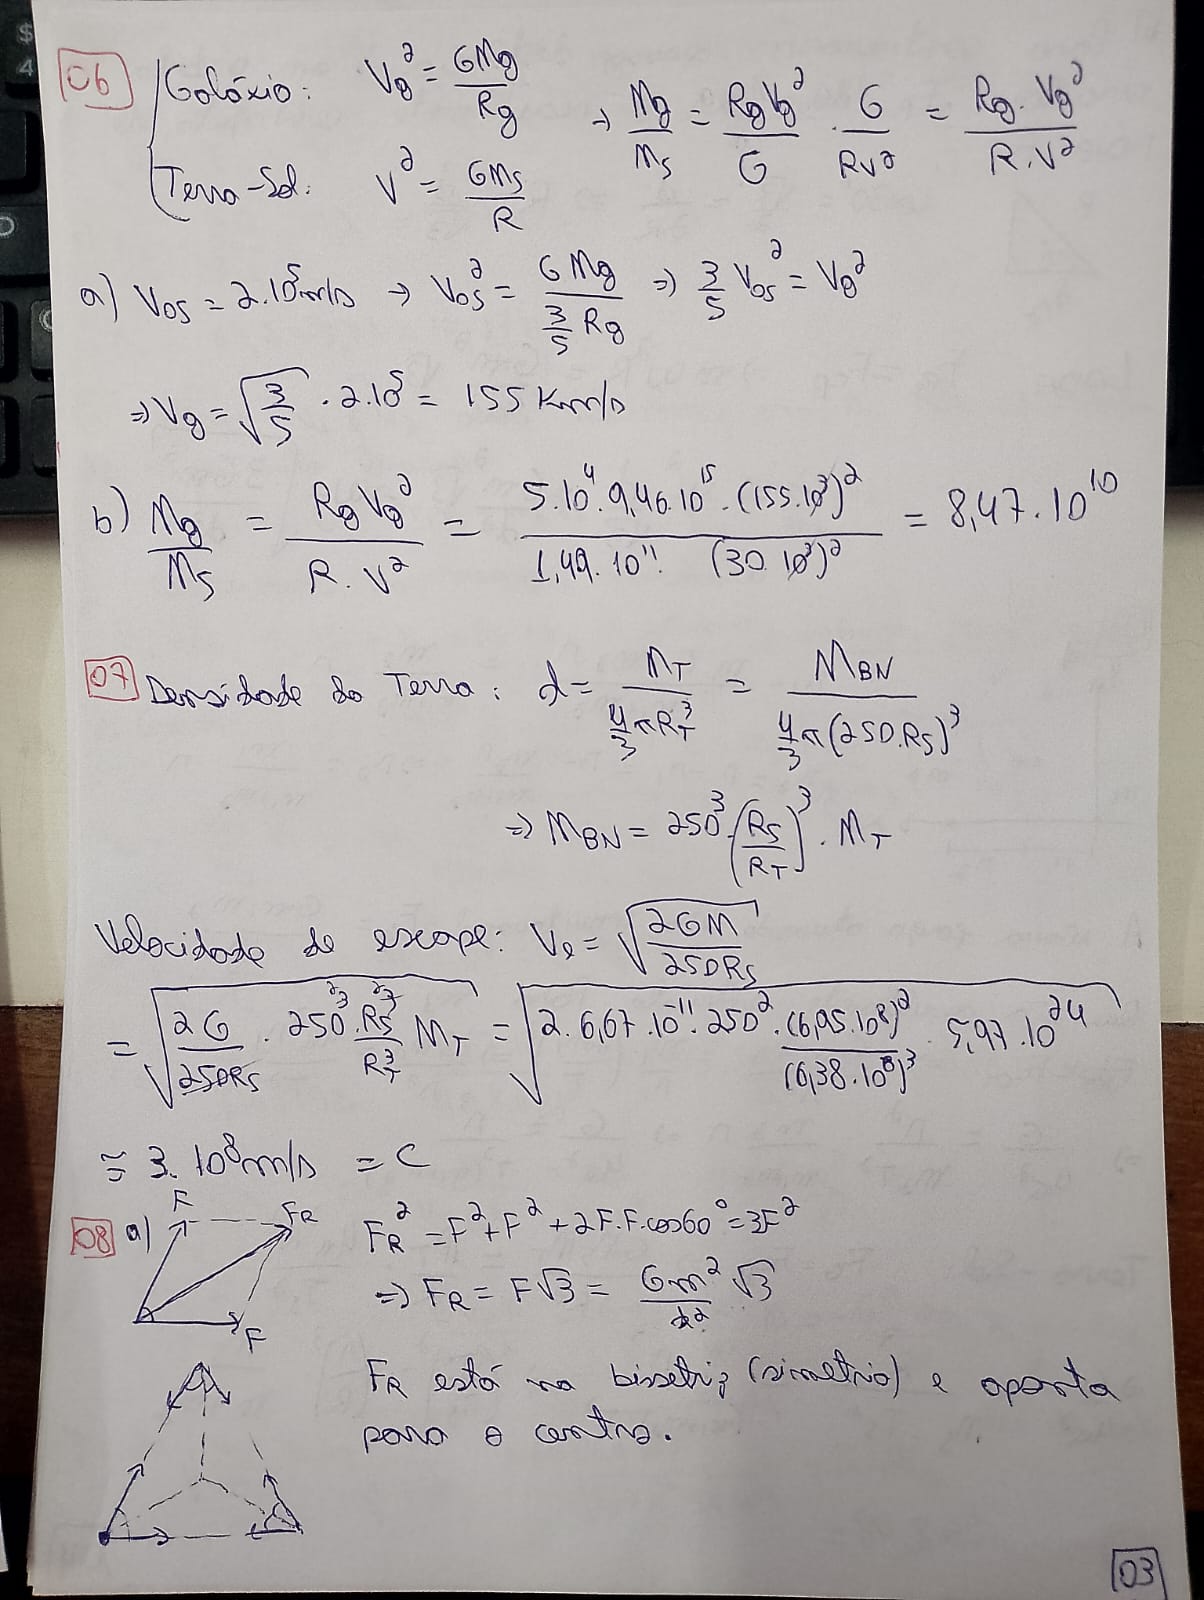 06 Galáxia: Vg² = GMg/Rg ⇒ Mg/Ms = RgVg²/G · G/RV² = Rg.Vg²/R.V²
Terra-Sol: V² = GMs/R
a) Vos = 2.10⁵m/s → Vos² = GMg/(3/5 Rg) ⇒ 3/5 Vos² = Vg²
⇒ Vg = √(3/5) . 2.10⁵ = 155 Km/s
b) Mg/Ms = RgVg²/R.V² = 5.10⁴.9,46.10¹⁵.(155.10³)²/1,49.10¹¹.(30.10³)² = 8,47.10¹⁰
07 Densidade da Terra: d = MT/(4/3 πRT³) = MBN/(4/3 π(250.RS)³)
⇒ MBN = 250³.(RS/RT)³.MT
Velocidade de escape: Ve = √(2GM/250RS)
= √(2G/250RS . 250³.RS³/RT³ MT) = √(2.6,67.10⁻¹¹.250².(6,95.10⁸)²/(6,38.10⁶)³ . 5,97.10²⁴)
≅ 3.10⁸m/s = C
08 a) F FR F FR² = F²+F²+2F.F.cos60° = 3F²
⇒ FR = F√3 = Gm²√3/d²
FR está na bissetriz (simetria) e aponta
para o centro.
03